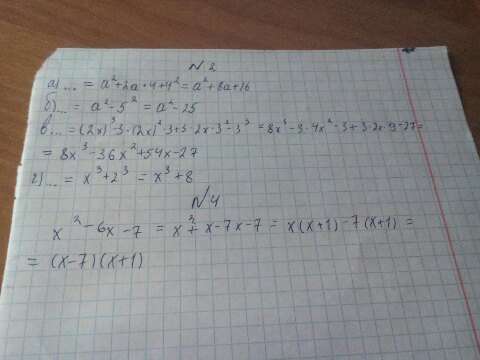 №2
а)... = a²+2a·4+4² = a²+8a+16
б)... = a²-5² = a²-25
в... = (2x)³-3·(2x)²·3+3·2x·3²-3³ = 8x³-3·4x²·3+3·2x·9-27=
= 8x³-36x²+54x-27
г)... = x³+2³ = x³+8
№4
x²-6x-7 = x²+x-7x-7 = x(x+1)-7(x+1) =
= (x-7)(x+1)